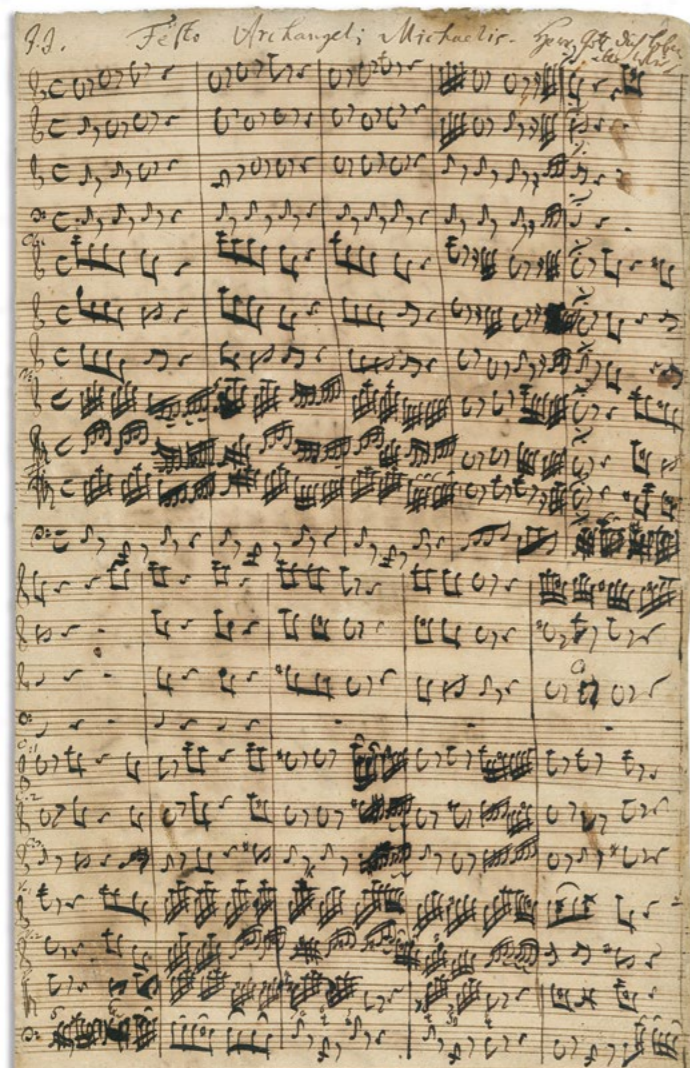 J. J. Festo Archangeli Michaelis. Herr Gott dich loben
alle wir